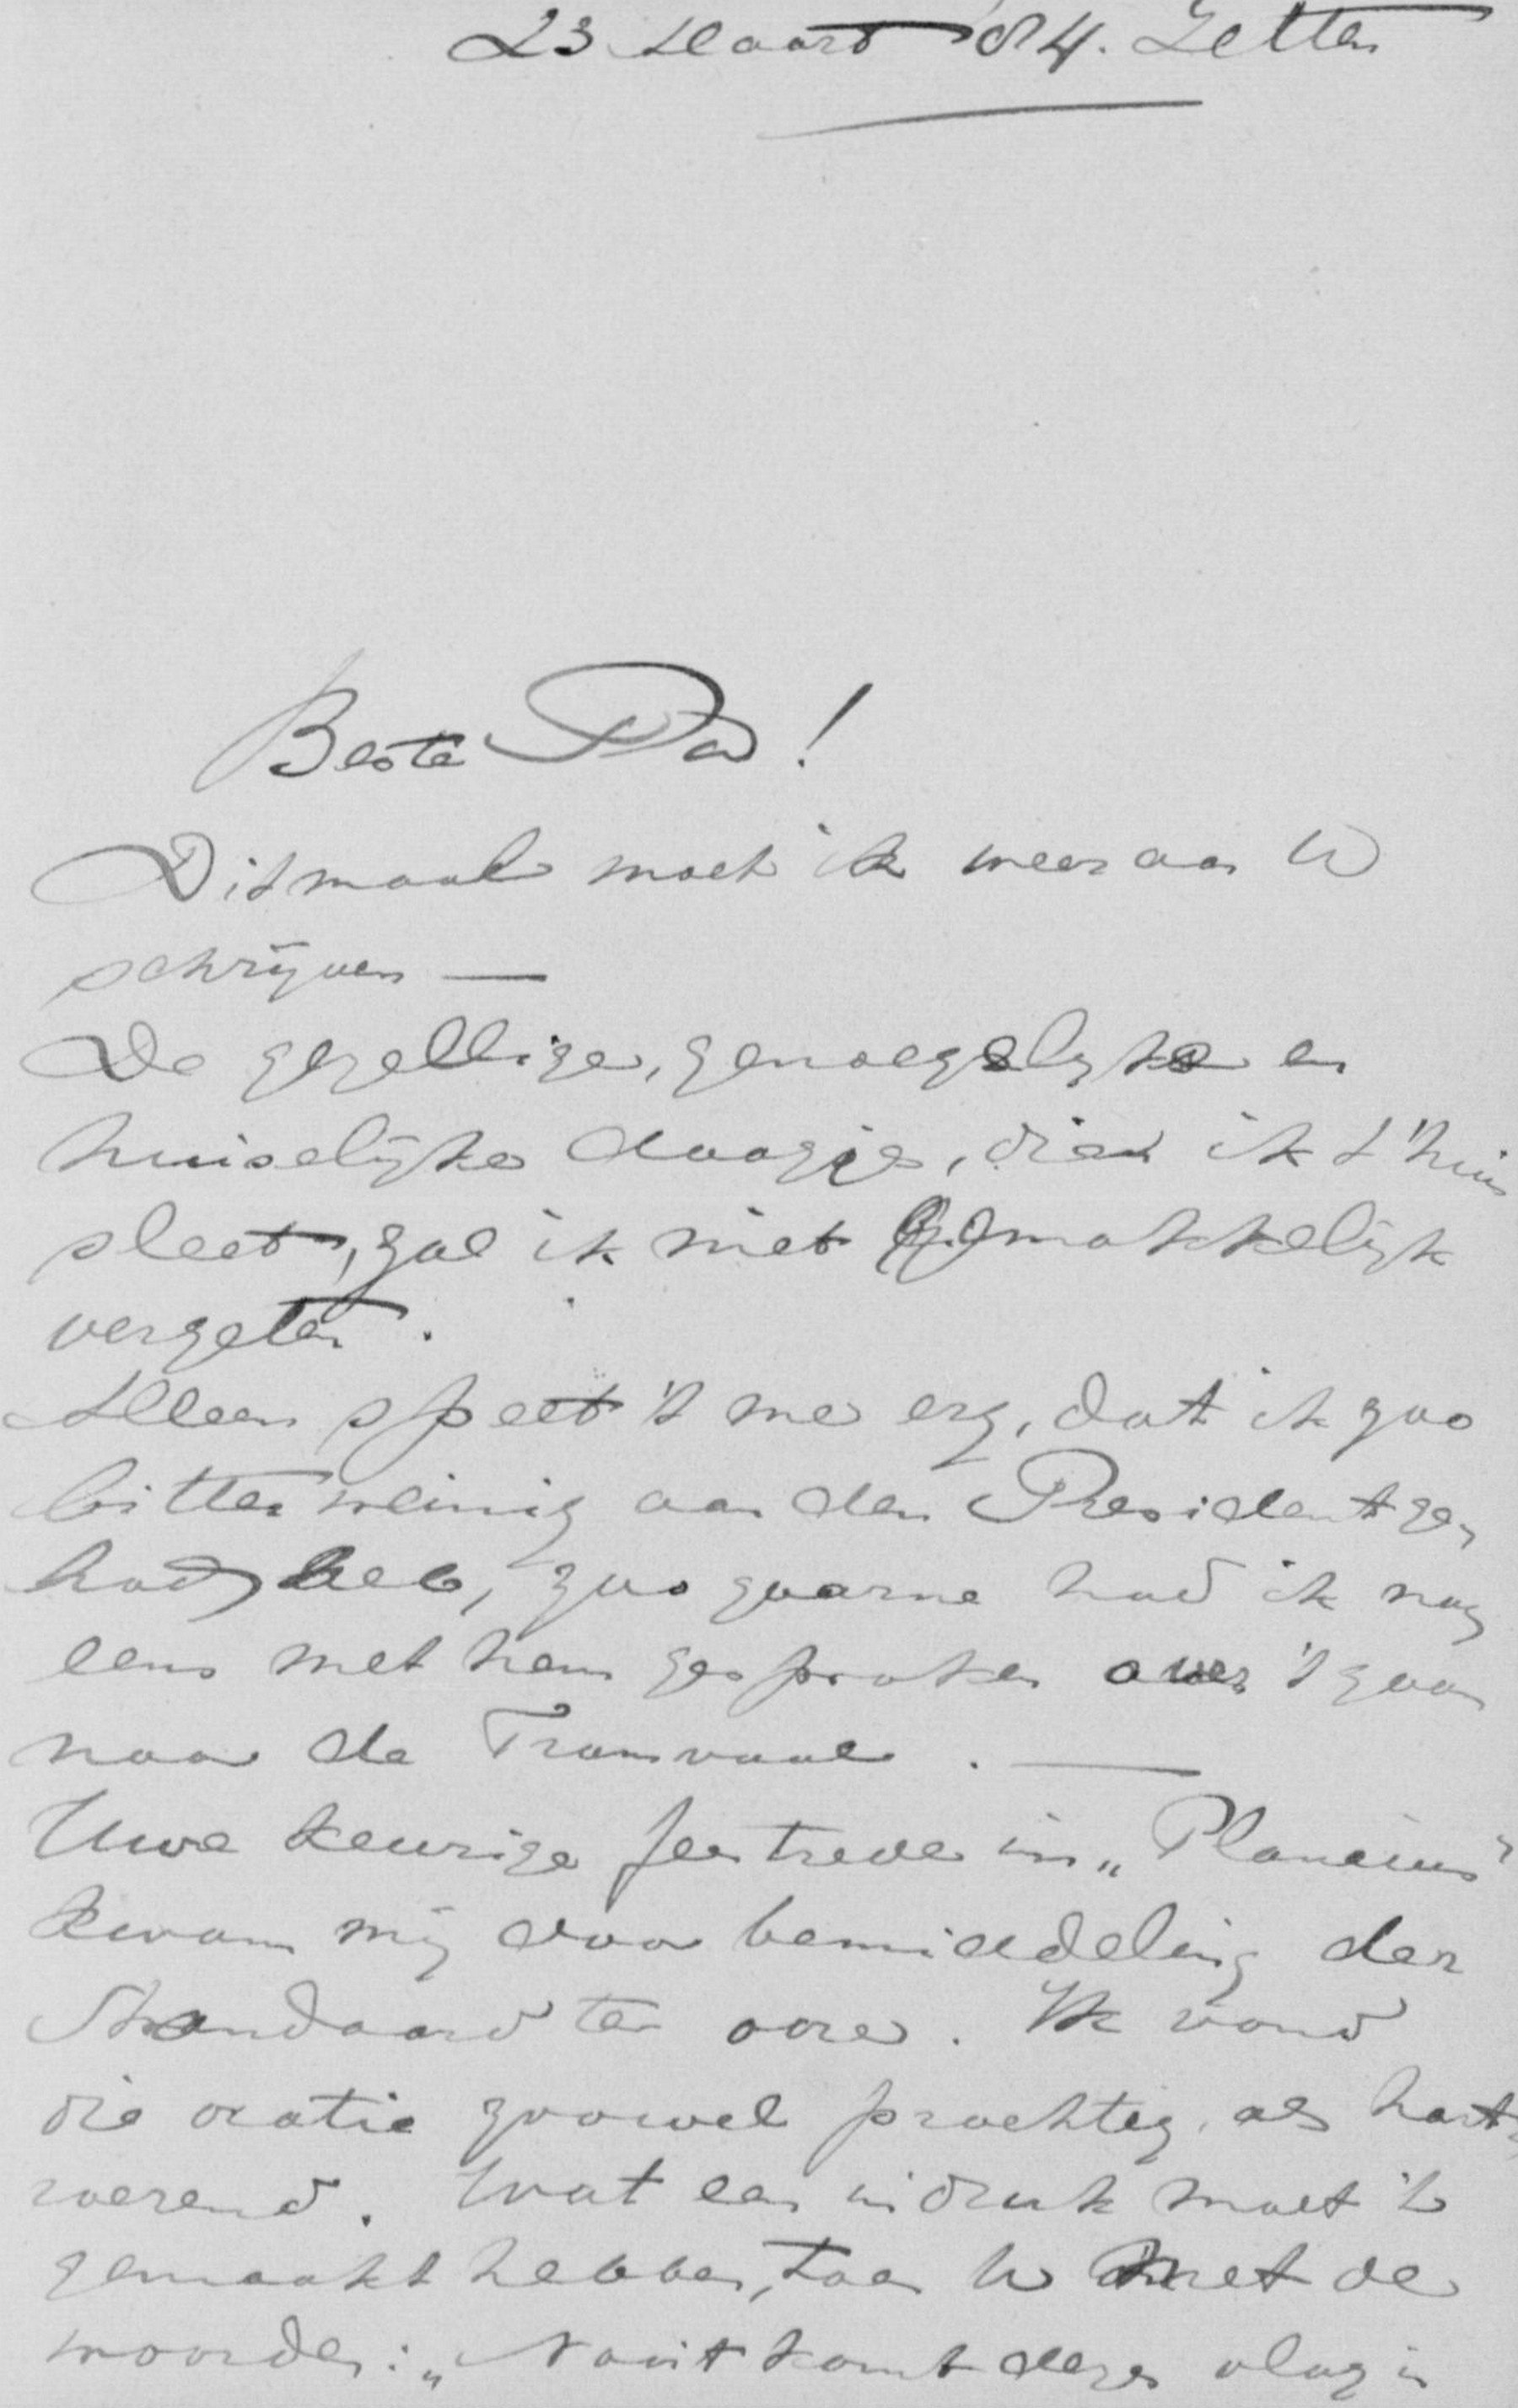 23 Maart '84. Zetten
Beste Pa!
Ditmaal moet ik weer aan U
schrijven —
De gezellige, genoegelyke en
huiselijke daagjes, die ik t'huis
sleet, zal ik niet gemakkelijk
vergeten.
Alleen speet 't me erg, dat ik zoo
bitter weinig aan den President ge,
had heb, zoo gaarne had ik nog
eens met hem gesproken over 't gaan
naar de Transvaal. —
Uwe keurige feestrede in „Plancius"
kwam mij door bemiddeling der
Standaard ter oore. Ik vond
die oratie zoowel prachtig, als hart,
roerend. Wat een indruk moet 't
gemaakt hebben, toen U met de
woorden: „Nooit komt deze vlag in